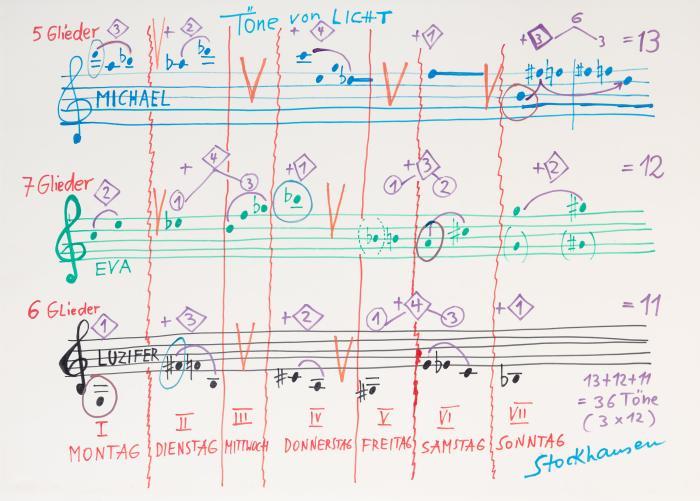 Töne von LICHT
5 Glieder 3 + 2 + 4 + 1 + 3 6 3 = 13
MICHAEL
7 Glieder 2 + 4 1 3 + 1 + 3 1 2 + 2 = 12
EVA
6 Glieder 1 + 3 + 2 + 4 1 3 + 1 = 11
LUZIFER
13+12+11
= 36 Töne
(3 x 12)
I II III IV V VI VII
MONTAG DIENSTAG MITTWOCH DONNERSTAG FREITAG SAMSTAG SONNTAG
Stockhausen